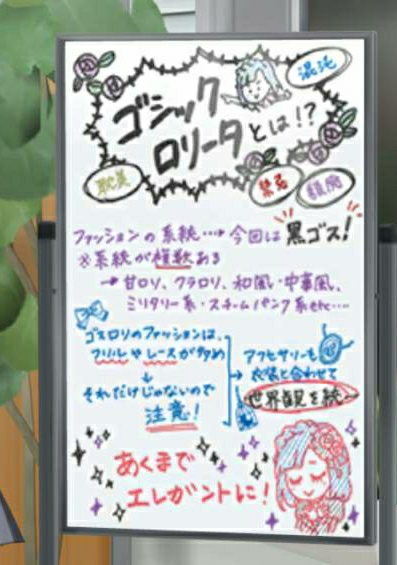 混沌
ゴシック
ロリータとは!?
耽美
禁忌
頽廃
ファッションの系統…→今回は黒ゴス!
※系統が複数ある
→甘ロリ、クラロリ、和風・中華風、
ミリタリー系・スチームパンク系etc…
ゴスロリのファッションは、
フリルやレースが多め
↓
それだけじゃないので
注意!
→アクセサリーも
衣装と合わせて
世界観を統一
あくまで
エレガントに!